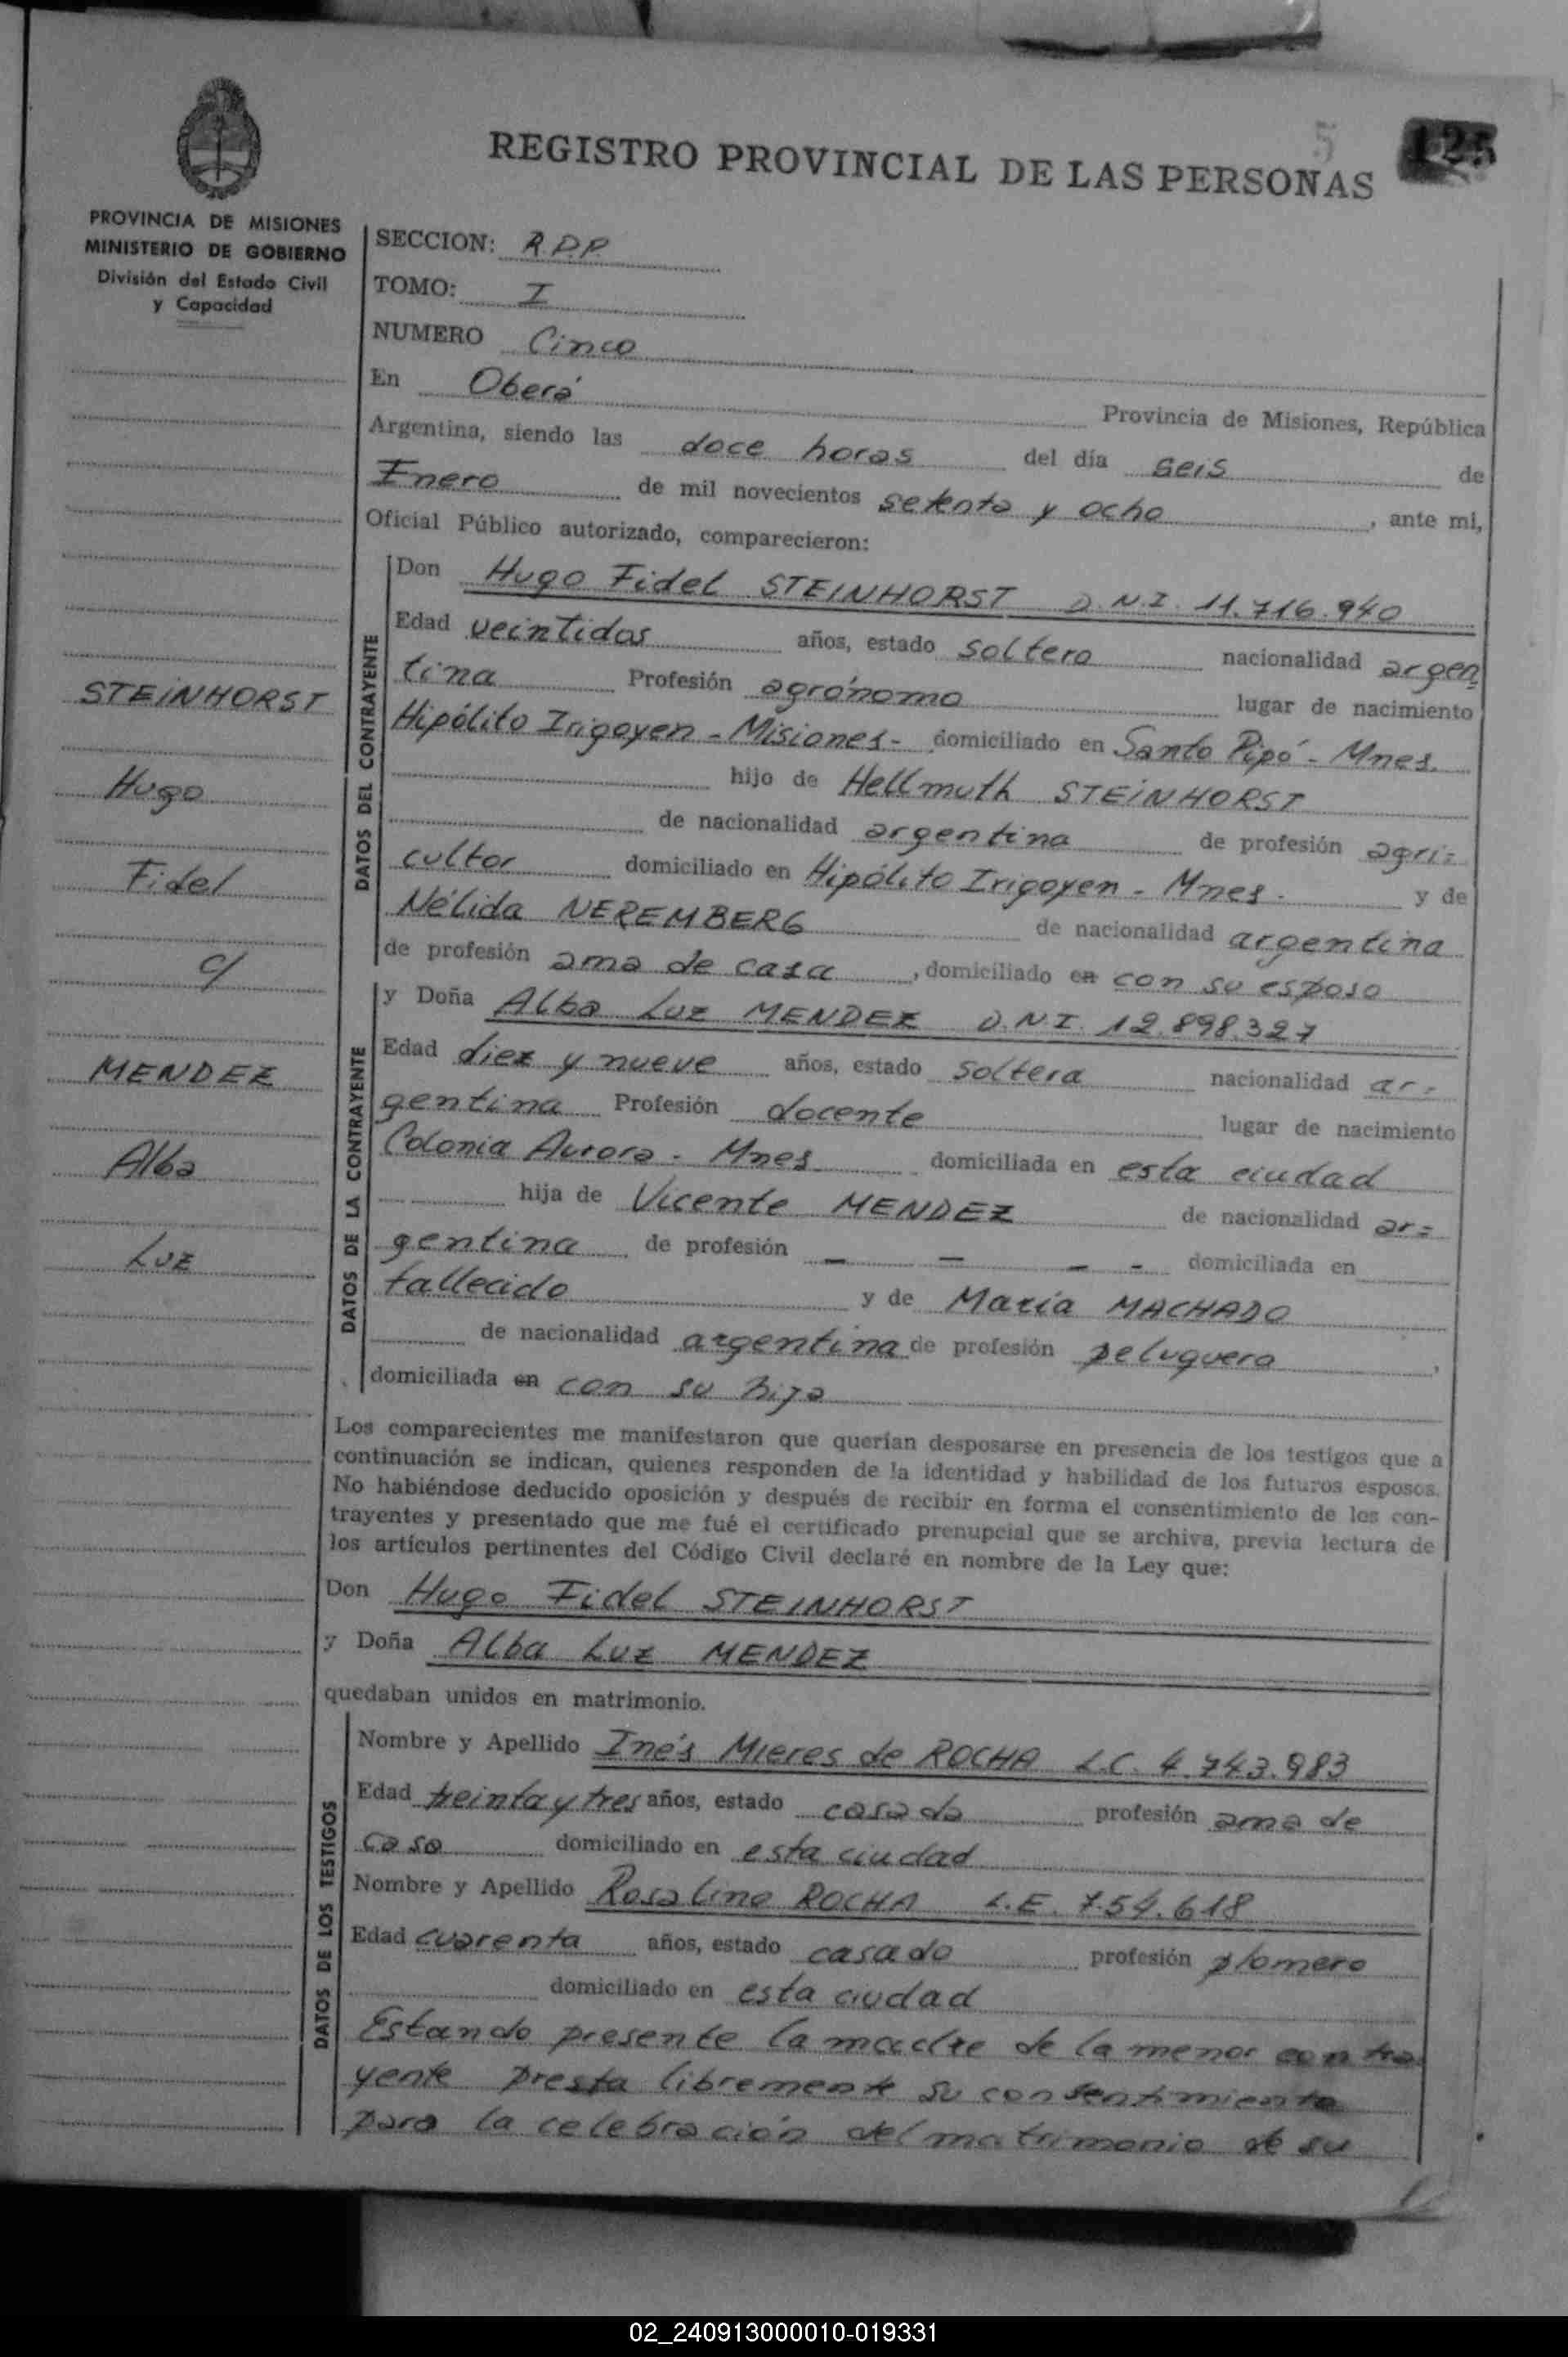 REGISTRO PROVINCIAL DE LAS PERSONAS
5
125
PROVINCIA DE MISIONES
MINISTERIO DE GOBIERNO
División del Estado Civil
y Capacidad
STEINHORST
Hugo
Fidel
c/
MENDEZ
Alba
Luz
SECCION: R.P.P.
TOMO: I
NUMERO Cinco
En Oberá Provincia de Misiones, República
Argentina, siendo las doce horas del día seis de
Enero de mil novecientos setenta y ocho, ante mi,
Oficial Público autorizado, comparecieron:
DATOS DEL CONTRAYENTE
Don Hugo Fidel STEINHORST D.N.I. 11.716.940
Edad veintidos años, estado soltero nacionalidad argen
tina Profesión agrónomo lugar de nacimiento
Hipólito Irigoyen - Misiones - domiciliado en Santo Pipó - Mnes.
hijo de Hellmuth STEINHORST
de nacionalidad argentina de profesión agri=
cultor domiciliado en Hipólito Irigoyen - Mnes. y de
Nélida NEREMBERG de nacionalidad argentina
de profesión ama de casa, domiciliado en con su esposo
DATOS DE LA CONTRAYENTE
y Doña Alba Luz MENDEZ D.N.I. 12.898.327
Edad diez y nueve años, estado soltera nacionalidad ar=
gentina Profesión docente lugar de nacimiento
Colonia Aurora - Mnes. domiciliada en esta ciudad
hija de Vicente MENDEZ de nacionalidad ar=
gentina de profesión - - - - domiciliada en
fallecido y de María MACHADO
de nacionalidad argentina de profesión peluquera,
domiciliada en con su hija
Los comparecientes me manifestaron que querían desposarse en presencia de los testigos que a
continuación se indican, quienes responden de la identidad y habilidad de los futuros esposos.
No habiéndose deducido oposición y después de recibir en forma el consentimiento de los con-
trayentes y presentado que me fué el certificado prenupcial que se archiva, previa lectura de
los artículos pertinentes del Código Civil declaré en nombre de la Ley que:
Don Hugo Fidel STEINHORST
y Doña Alba Luz MENDEZ
quedaban unidos en matrimonio.
DATOS DE LOS TESTIGOS
Nombre y Apellido Inés Mieres de ROCHA L.C. 4.743.983
Edad treinta y tres años, estado casada profesión ama de
casa domiciliado en esta ciudad
Nombre y Apellido Rosalino ROCHA L.E. 7.54.618
Edad cuarenta años, estado casado profesión plomero
domiciliado en esta ciudad
Estando presente la madre de la menor contra
yente presta libremente su consentimiento
para la celebración del matrimonio de su
02_240913000010-019331